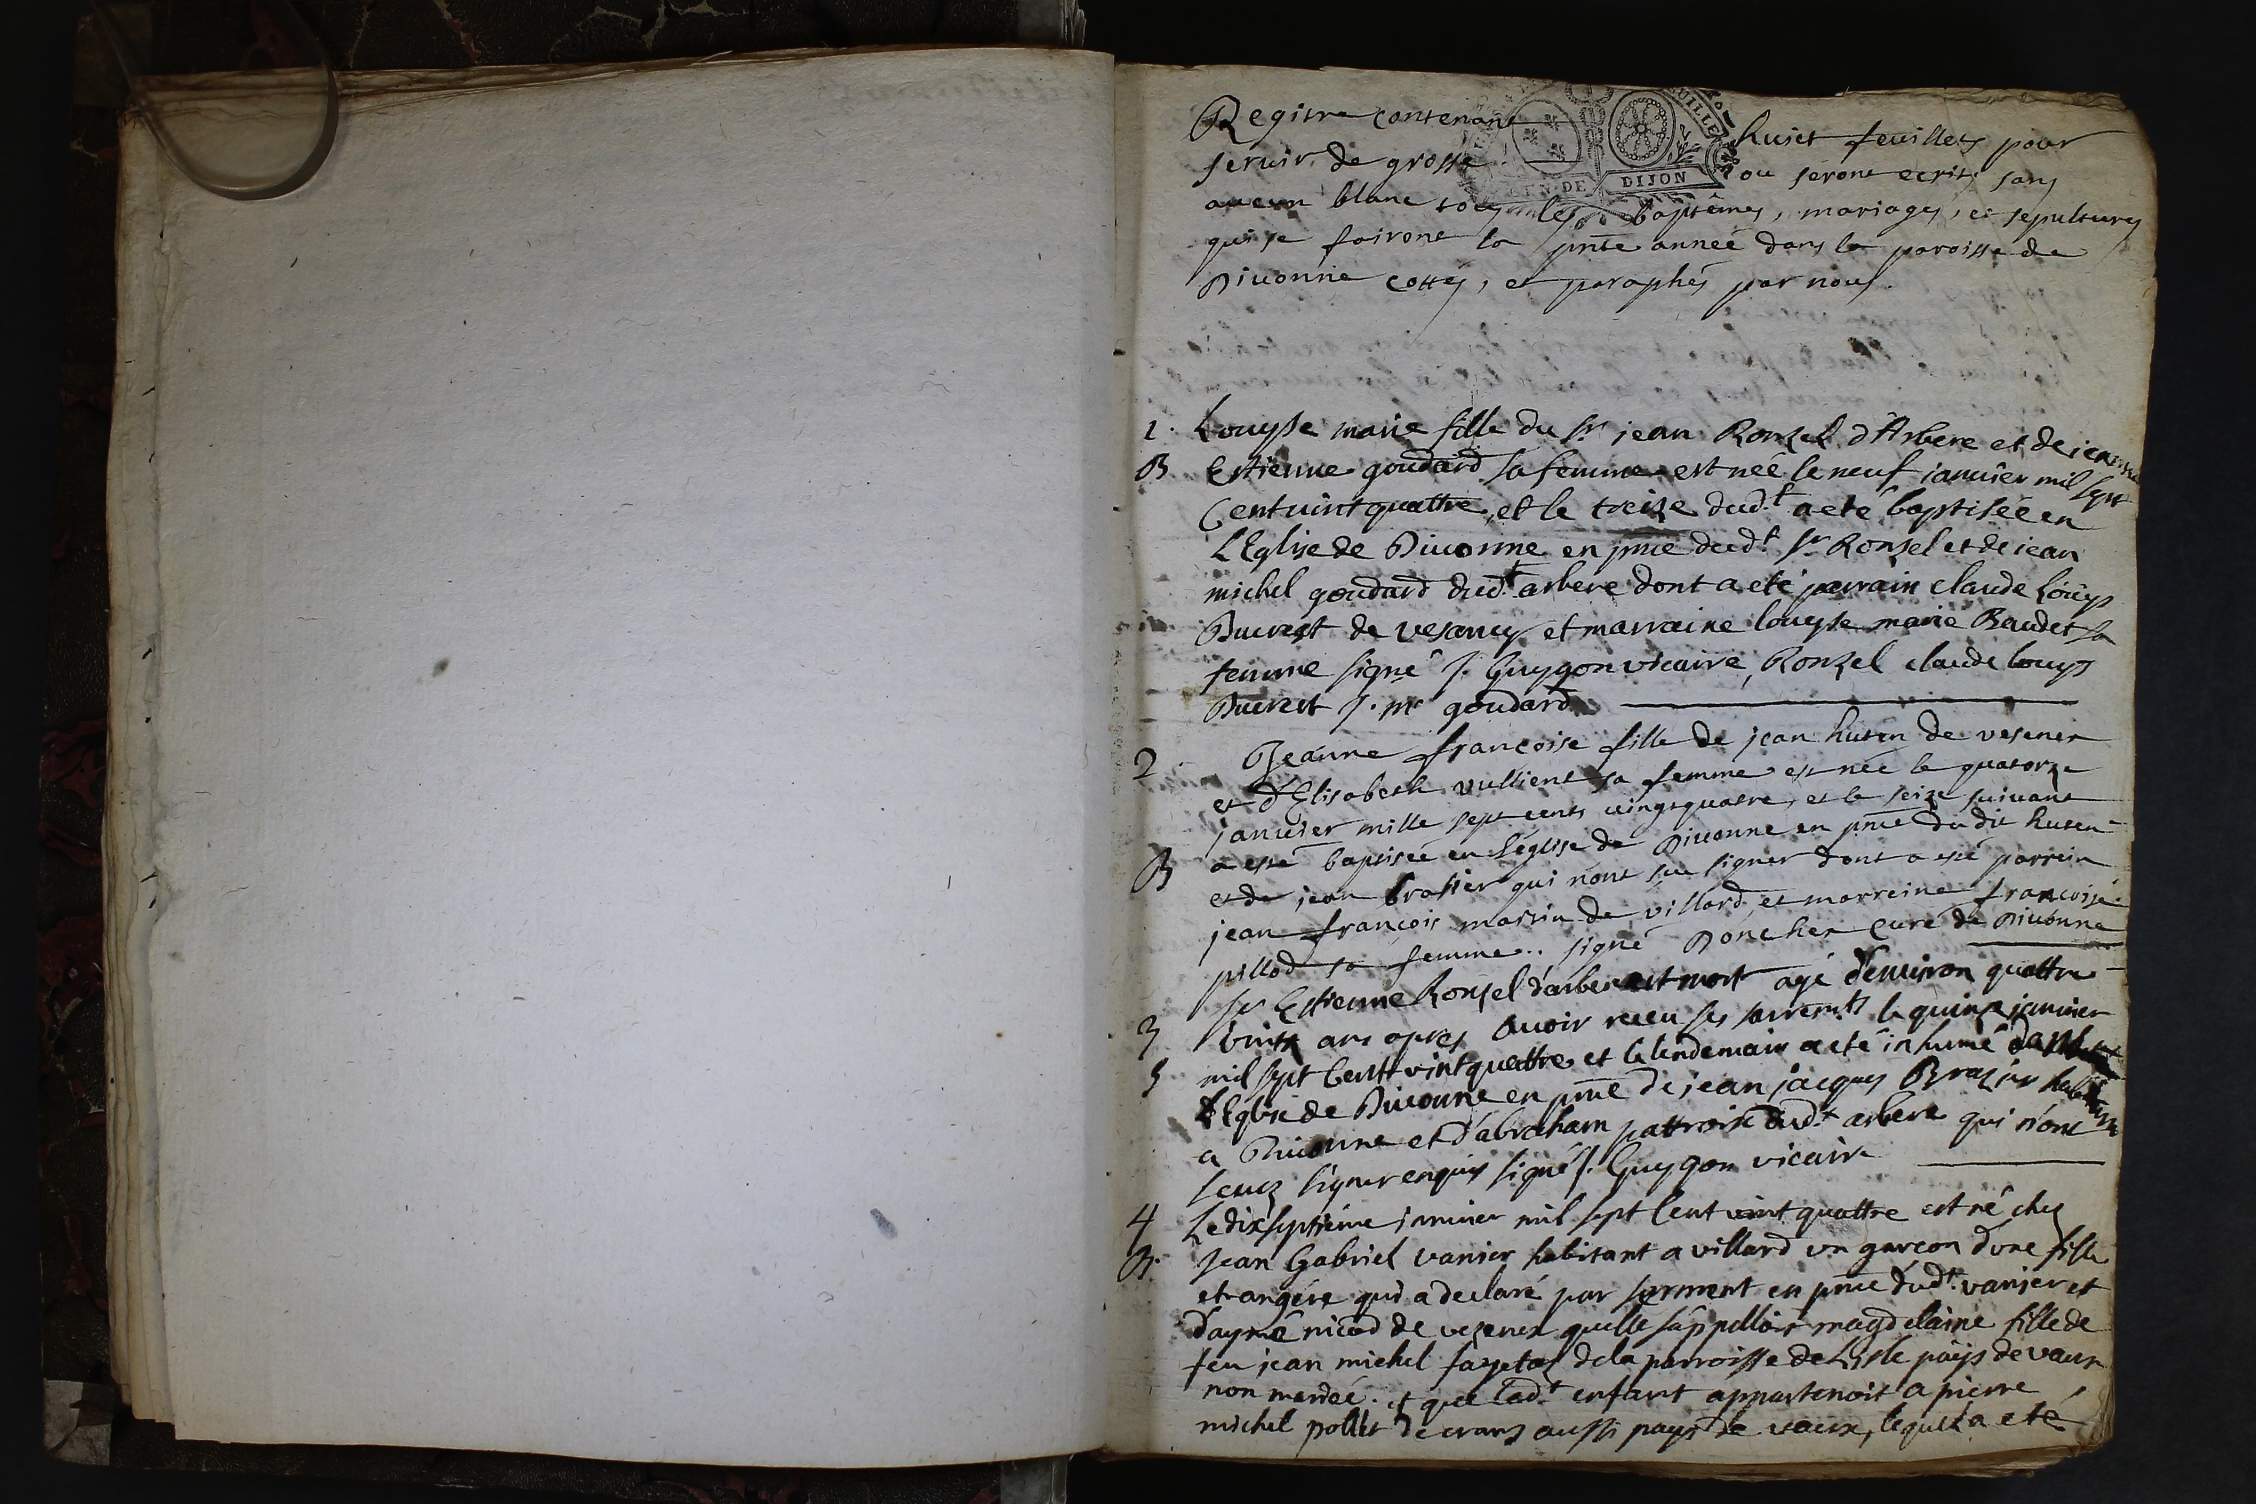 Registre contenant huict feuillets pour
servir de grosse ou seront ecrits sans
GEN DE DIJON
aucun blanc tous les baptêmes, mariages, et sepultures
qui se fairont la pnte année dans la paroisse de
Divonne cottés, et paraphés par nous.
1. Louyse marie fille du sr jean Ronzel d'Arbere et de jeanne
B Estienne goudard sa femme est neé le neuf janvier mil sept
Cent vint quattre, et le treize dudt a eté baptiseé en
L'Eglise de Divonne en pnce dudt sr Ronzel et de jean
michel goudard dudt arbere dont a eté parrain claude Louys
Ducrest de vesancy et marraine louyse marie Baudet sa
femme signé J. Guygon vicaire, Ronzel claude louys
Ducrest J. m goudard
2. Jeanne françoise fille de jean huten de vesener
et d'Elisabeth vullient sa femme est née le quatorze
janvier mille sept cents vingt quatre, et le seize suivant
B a esté baptisée en l'église de Divonne en pnce du dit huten
et de jean brasier qui nont sçu signer dont a esté parrein
jean françois massin de villard, et marreine françoise
pillod sa femme.. signé Poncher Curé de Divonne
sr Estienne Ronzel d'arbere est mort agé d'environ quattre
3 vints ans apres avoir receu ses sacremts le quinze janvier
S mil sept Cent vint quattre et le lendemain a eté inhumé dans
L'Eglise de Divonne en pnce de jean jacques Brazier habitant
a Divonne et d'abraham pattroix dudt arbere qui n'ont
sceuz signer enquis signé J. Guygon vicaire
4 Le dixseptiéme janvier mil sept Cent vint quattre est né chez
B. Jean Gabriel vanier habitant a villard un garçon d'une fille
etrangére qui a declaré par serment en pnce dudt vanier et
d'aymé nicod de vezenex quelle s'appelloit magdelaine fille de
feu jean michel fayetaz de la parroisse de L'isle païs de vaux
non marieé. et que ledt enfant appartenoit a pierre
michel pollet de crans aussi pays de vaux, lequel a eté